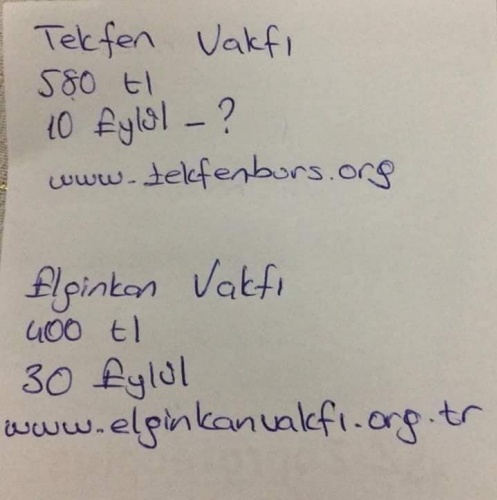 Tekfen Vakfı
580 tl
10 Eylül - ?
www.tekfenburs.org
Elginkan Vakfı
400 tl
30 Eylül
www.elginkanvakfı.org.tr